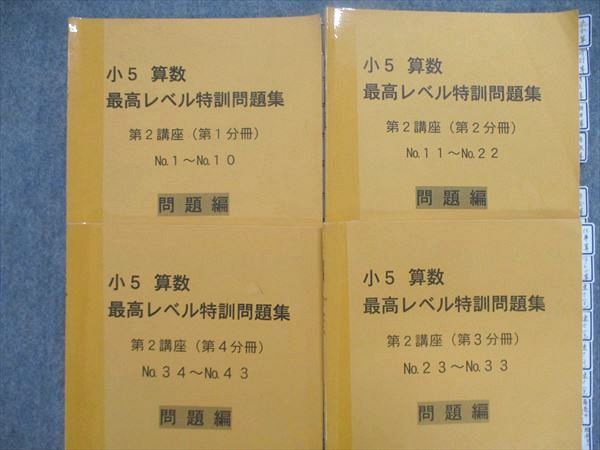 小5 算数
最高レベル特訓問題集
第2講座（第1分冊）
No.1～No.10
問題編
小5 算数
最高レベル特訓問題集
第2講座（第2分冊）
No.11～No.22
問題編
小5 算数
最高レベル特訓問題集
第2講座（第4分冊）
No.34～No.43
問題編
小5 算数
最高レベル特訓問題集
第2講座（第3分冊）
No.23～No.33
問題編